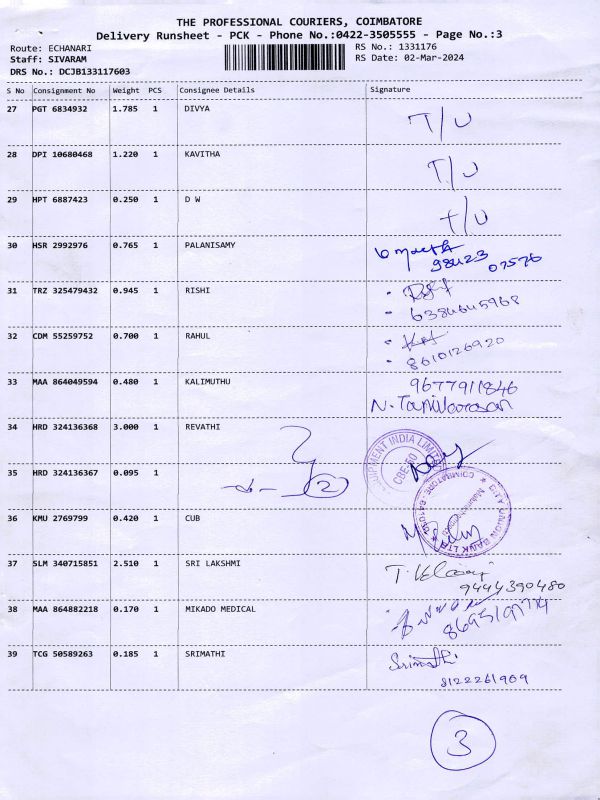 THE PROFESSIONAL COURIERS, COIMBATORE
Delivery Runsheet - PCK - Phone No.:0422-3505555 - Page No.:3
Route: ECHANARI RS No.: 1331176
Staff: SIVARAM RS Date: 02-Mar-2024
DRS No.: DCJB133117603
S No Consignment No Weight PCS Consignee Details Signature
27 PGT 6834932 1.785 1 DIVYA T/U
28 DPI 10680468 1.220 1 KAVITHA T/U
29 HPT 6887423 0.250 1 D W T/U
30 HSR 2992976 0.765 1 PALANISAMY
98423 07576
31 TRZ 325479432 0.945 1 RISHI
6384645968
32 CDM 55259752 0.700 1 RAHUL
8610126920
33 MAA 864049594 0.480 1 KALIMUTHU 9677911846
N. Tamilarasan
34 HRD 324136368 3.000 1 REVATHI
INDIA LIMITED
CBE-50
35 HRD 324136367 0.095 1 2
36 KMU 2769799 0.420 1 CUB
UNION BANK LTD
COIMBATORE
37 SLM 340715851 2.510 1 SRI LAKSHMI
9444390480
38 MAA 864882218 0.170 1 MIKADO MEDICAL
39 TCG 50589263 0.185 1 SRIMATHI Srimathi
8122261909
3